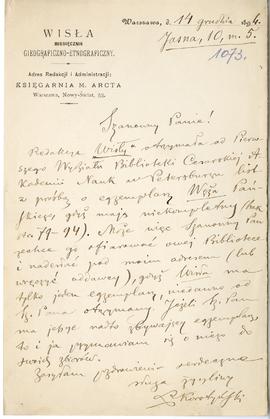 WISŁA
MIESIĘCZNIK
GIEOGRAFICZNO-ETNOGRAFICZNY.
Adres Redakcji i Administracji:
KSIĘGARNIA M. ARCTA
Warszawa, Nowy-Świat, 53.
Warszawa, d. 14 grudnia 1894.
Jasna, 10, m. 5.
1073.
Szanowny Panie!
Redakcja Wisły otrzymała od Pierw-
szego Wydziału Biblioteki Cesarskiej A-
kademii Nauk w Petersburgu list
z prośbą o egzemplarz Węża Pań-
skiego, gdyż mają niekompletny (
79-94). Może więc Szanowny Pan
zechce go ofiarować owej Bibliotece
i nadesłać pod moim adresem (lub
wręczyć oddawcy), gdyż Wisła ma
tylko jeden egzemplarz, niedawno od
Sz. Pana otrzymany. Jeżeli Sz. Pan
ma jeszcze nadto zbywający egzemplarz,
to i ja przymawiam się o niego do
swoich zbiorów.
Zasyłam pozdrowienia serdeczne
sługa życzliwy